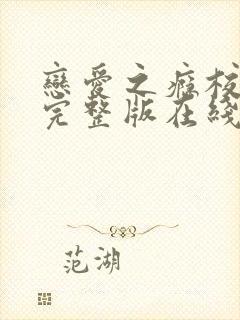 戀愛之癡校
完整版在綫
范湖